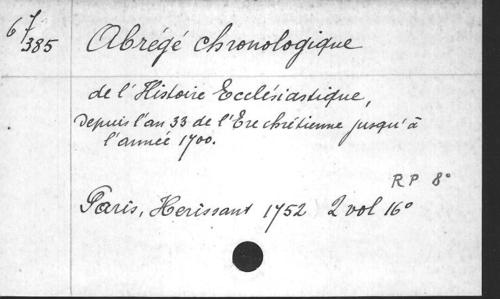 67
385
Abrégé chronologique
de l'Histoire Ecclésiastique,
depuis l'an 33 de l'Ere chrétienne jusqu'à
l'année 1700.
RP 8°
Paris, Herissant 1752 2 vol 16°